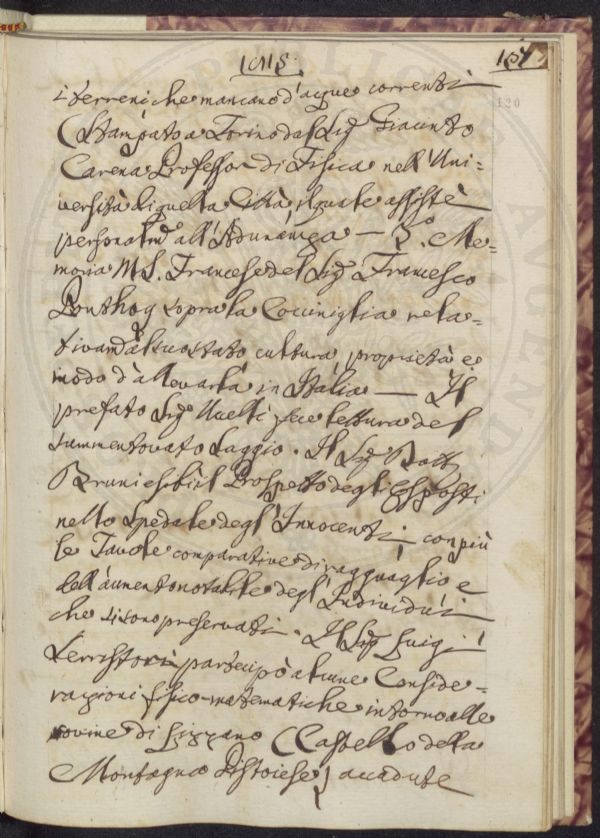 157
120
i terreni che mancano d'acque correnti
(Stampato a Torino dal Sig. Giacinto
Carena Professor di Fisica nell'Uni=
versità di quella Città, il quale assistè
personalm.e all'Adunanza — 3.o Me=
moria MS. Francese del Sig. Francesco
Bonthoy sopra la Cocciniglia rela=
tivam. al suo stato cultura, proprietà e
modo d'allevarla in Italia — Il
prefato Sig. Ucelli fece lettura del
summentovato Saggio. Il Sig. Dott.
Bruni esibì il Prospetto degl'Esposti
nello Spedale degl'Innocenti, con più
le Tavole comparative di ragguaglio e
dell'aumento notabile degl'Individui
che si sono preservati. Il Sig. Luigi
Serristori partecipò alcune Conside=
razioni fisico-matematiche intorno alle
rovine di Lizzano (Castello della
Montagna Pistoiese) accadute